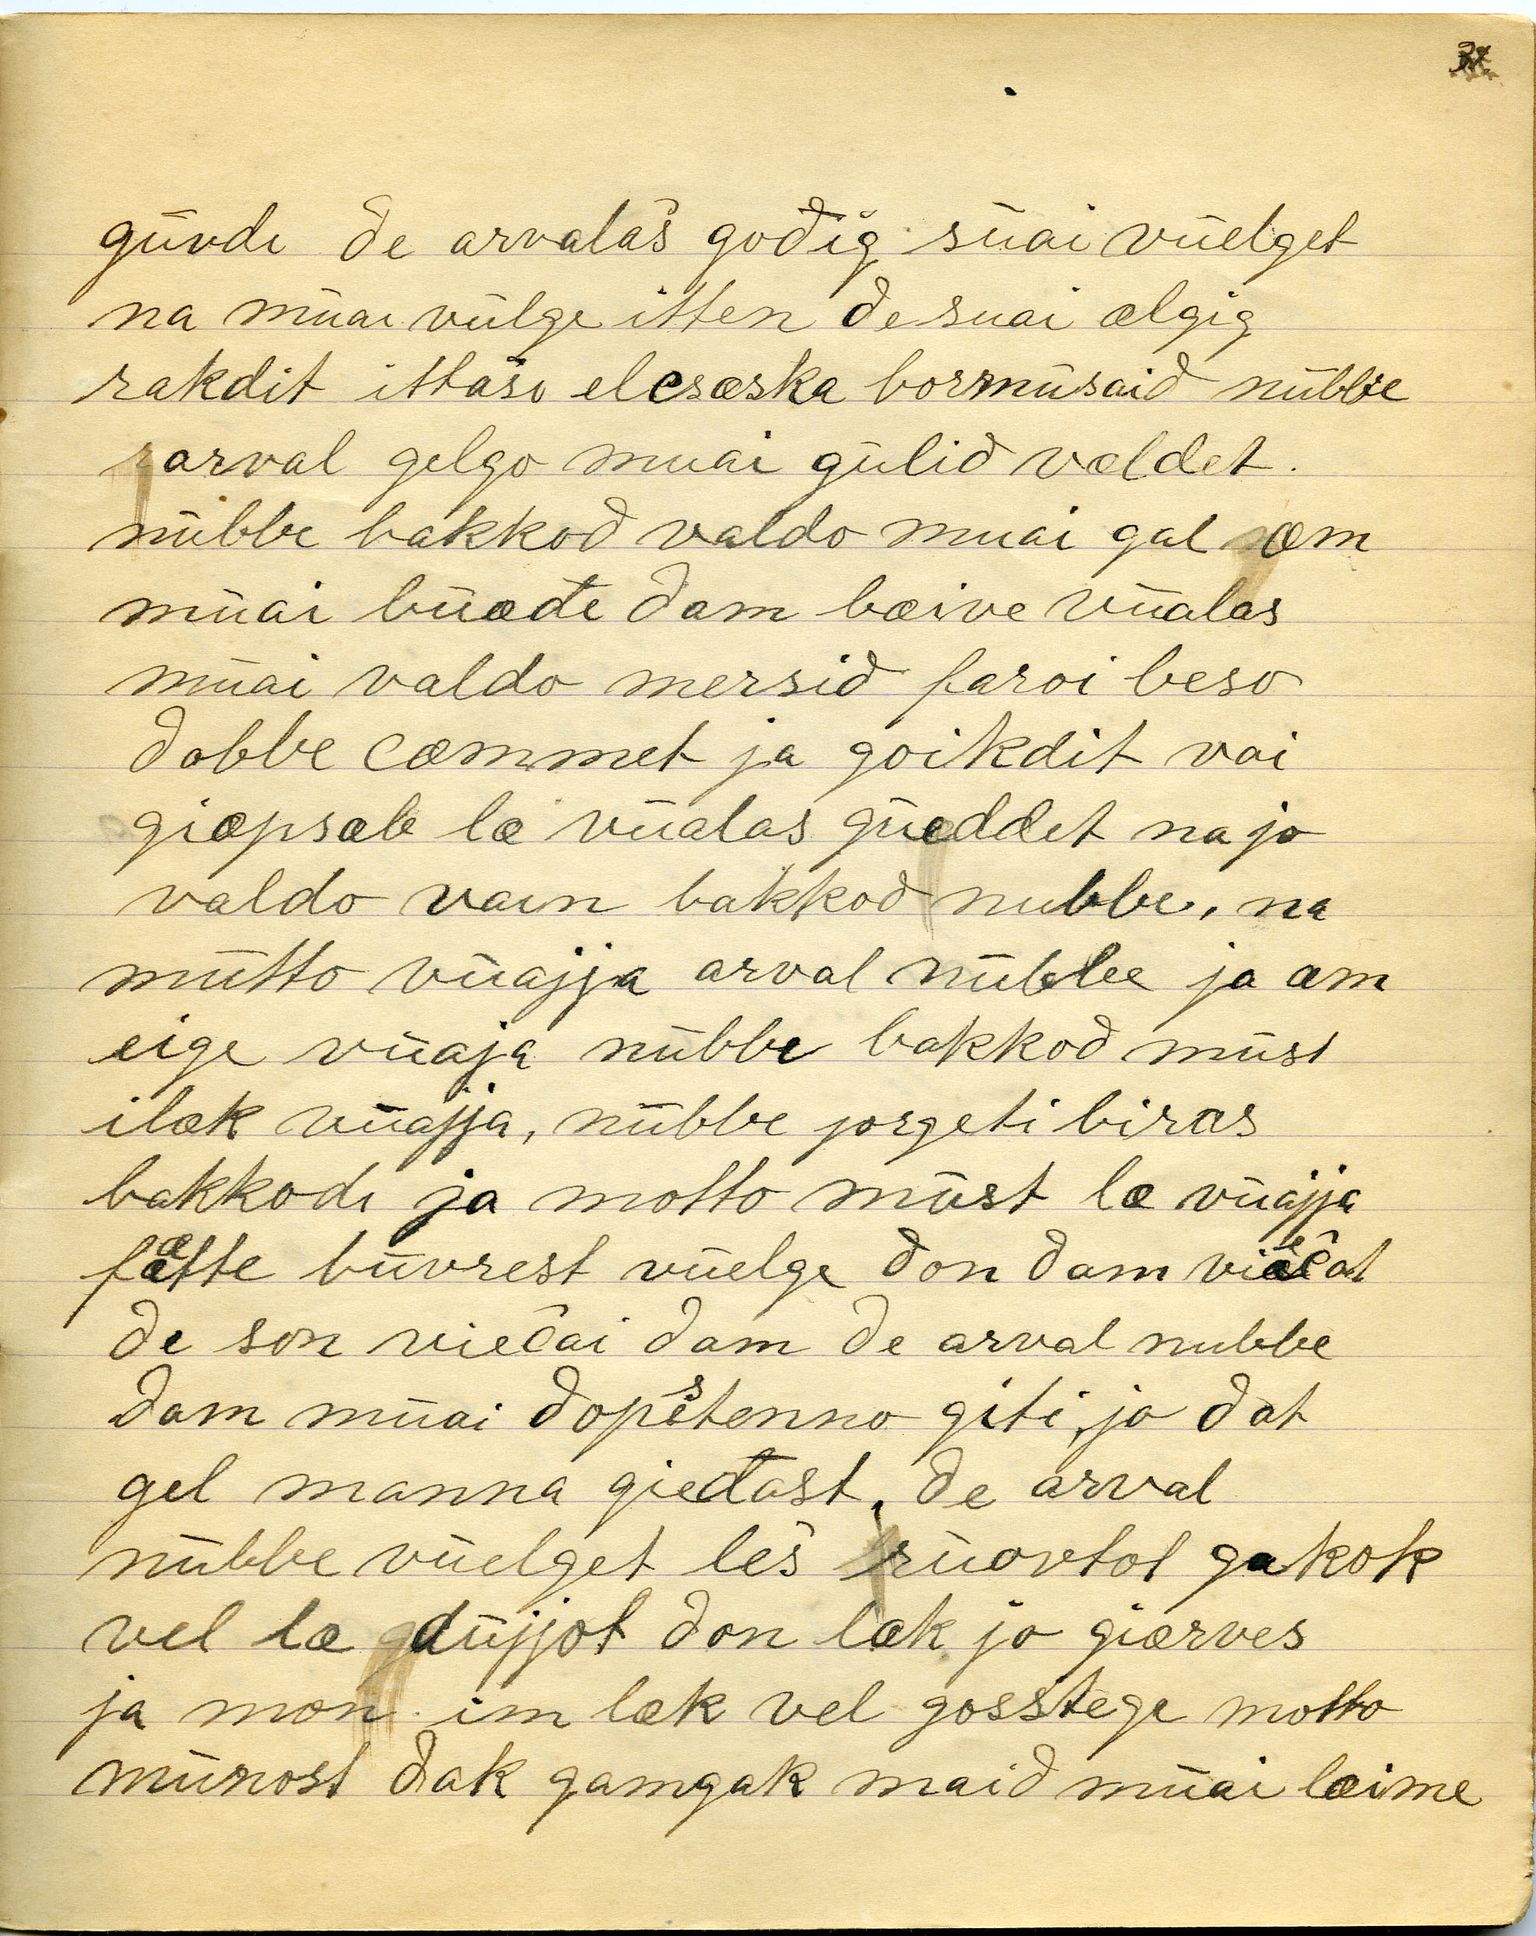 37.
güvdi de arvalaš gođig süai vüelget
na müai vülge itten de suai ælgig
rakdit ittäsi elesæska bormüsaid nübbe
arval gelgo muai gülid valdet.
nübbe bakkod valdo muai gal æm
müai büæđe dam bæive vüalas
müai valdo mersid faroi beso
dobbe cæmmet ja goikdit vai
giæpsæb læ vüalas güeddet na jo
valdo vain bakkod nubbe, na
mütto vüajja arval nübbe ja æm
eige vüaja nübbe bakkod müst
ilæk vüajja, nübbe jorgeti biras
bakkodi ja motto müst læ vüajja
fætte büvrest vüelge don dam viečat
de son viečai dam de arval nubbe
dam müai dopstenno giti, jo dat
gel manna gieđast, de arval
nübbe vüelget leš rüovtot gakok
vel læ düjjot don læk jo giærves
ja mon im læk vel gosstege motto
münost dak gamgak maid müai læime